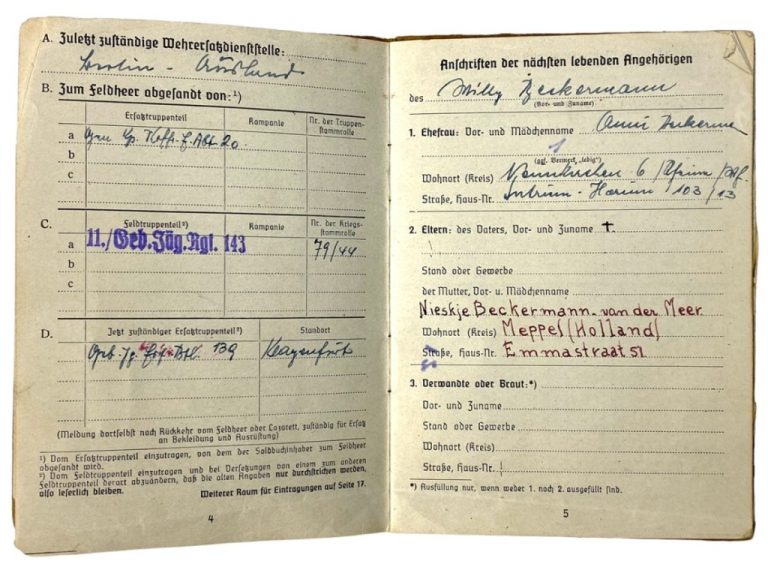 A. Zuletzt zuständige Wehrersatzdienststelle:
Berlin - Ausland
B. Zum Feldheer abgesandt von:¹)
Ersatztruppenteil Kompanie Nr. der Truppenstammrolle
a Abt. 20
b
c
C. Feldtruppenteil²) Kompanie Nr. der Kriegsstammrolle
a 11./Geb.Jäg.Rgt. 143 79/44
b
c
D. Jetzt zuständiger Ersatztruppenteil²) Standort
139 Klagenfurt
(Meldung dortselbst nach Rückkehr vom Feldheer oder Lazarett, zuständig für Ersatz
an Bekleidung und Ausrüstung)
¹) Vom Ersatztruppenteil einzutragen, von dem der Soldbuchinhaber zum Feldheer
abgesandt wird.
²) Vom Feldtruppenteil einzutragen und bei Versetzungen von einem zum anderen
Feldtruppenteil derart abzuändern, daß die alten Angaben nur durchstrichen werden,
also leserlich bleiben.
Weiterer Raum für Eintragungen auf Seite 17.
4
Anschriften der nächsten lebenden Angehörigen
des Willy Beckermann
(Vor- und Zuname)
1. Ehefrau: Vor- und Mädchenname
(ggf. Vermerk „ledig")
Wohnort (Kreis)
Straße, Haus-Nr. 103/13
2. Eltern: des Vaters, Vor- und Zuname †
Stand oder Gewerbe
der Mutter, Vor- u. Mädchenname
Nieskje Beckermann-van der Meer
Wohnort (Kreis) Meppel (Holland)
Straße, Haus-Nr. Emmastraat 51
3. Verwandte oder Braut:*)
Vor- und Zuname
Stand oder Gewerbe
Wohnort (Kreis)
Straße, Haus-Nr.
*) Ausfüllung nur, wenn weder 1. noch 2. ausgefüllt sind.
5